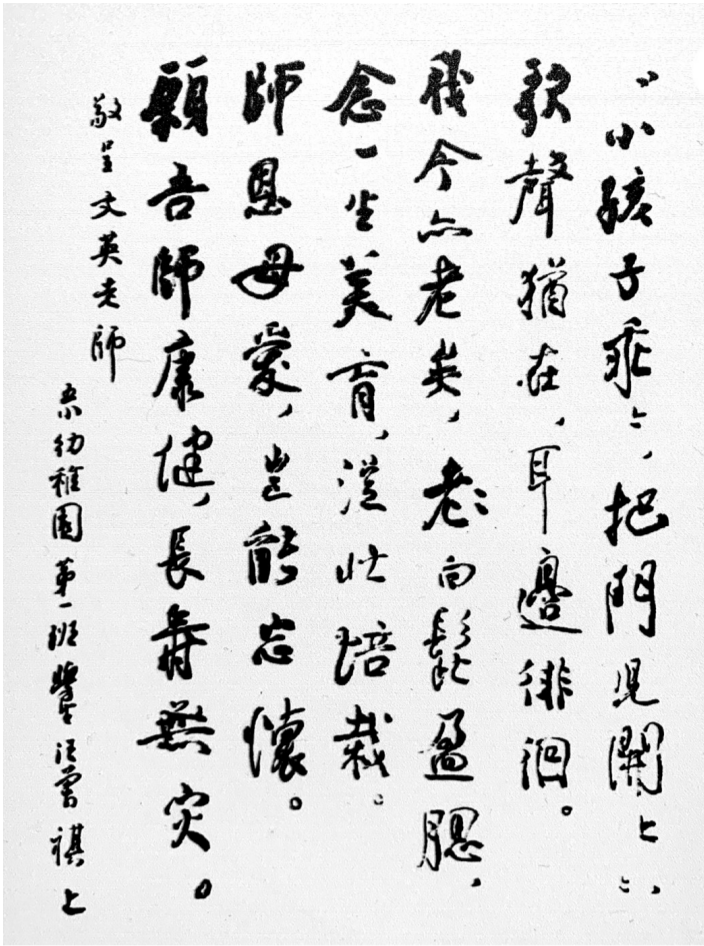 “小孩子乖〻,把門兒開〻”
歌聲猶在,耳邊徘徊。
我今亦老矣,老〻白髭盈腮,
念一生美育,從此培栽。
師恩母愛,豈能忘懷。
願吾師康健,長壽無災。
敬呈文英老師
五小幼稚園第一班學生汪曾祺上